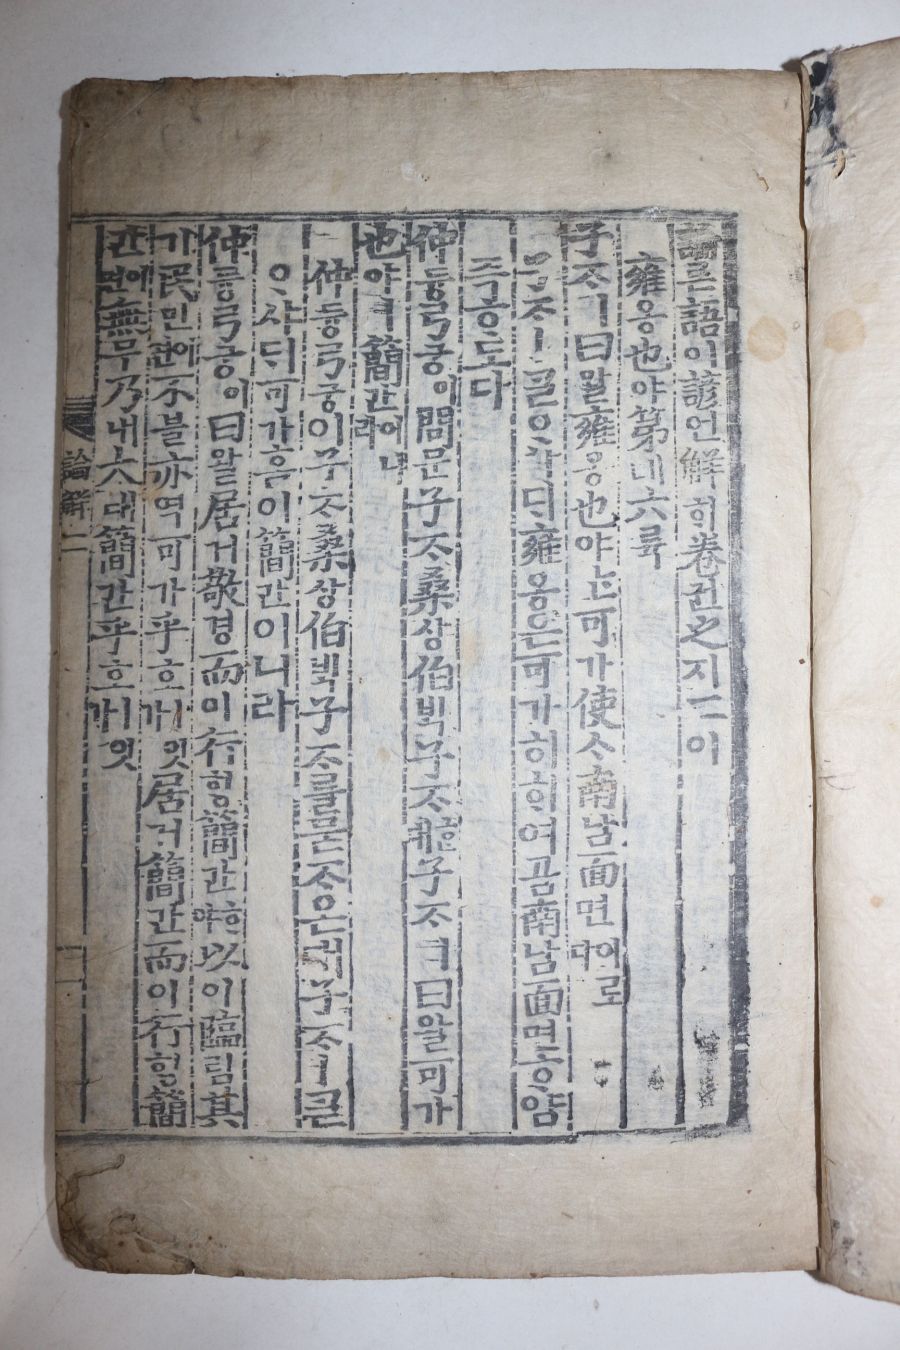 論론語어諺언解ᄒᆡ卷권之지二이
雍옹也야第뎨六륙
子ᄌᆞㅣ曰왈雍옹也야ᄂᆞᆫ可가使ᄉᆞ南남面면이로다
子ᄌᆞㅣᄀᆞᆯᄋᆞ샤ᄃᆡ雍옹은可가히ᄒᆞ여곰南남面면ᄒᆞ얌
즉ᄒᆞ도다
仲듕弓궁이問문子ᄌᆞ桑상伯ᄇᆡᆨ子ᄌᆞᄒᆞᆫ대子ᄌᆞㅣ曰왈可가
也야ㅣ簡간이니라
仲듕弓궁이子ᄌᆞ桑상伯ᄇᆡᆨ子ᄌᆞ를묻ᄌᆞ온대子ᄌᆞㅣᄀᆞᆯ
ᄋᆞ샤ᄃᆡ可가흠이簡간이니라
仲듕弓궁이曰왈居거敬경而이行ᄒᆡᆼ簡간ᄒᆞ야以이臨림其
기民민이면不블亦역可가乎호ㅣ잇가居거簡간而이行ᄒᆡᆼ簡
간이면無무乃내大대簡간乎호ㅣ잇
論解二